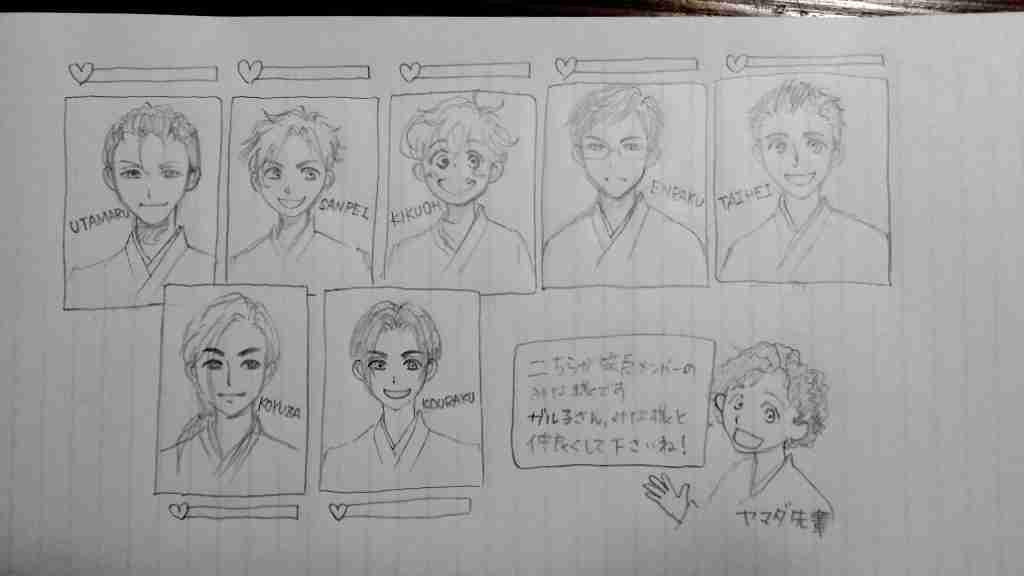 UTAMARU
SANPEI
KIKUOH
ENRAKU
TAIHEI
KOYUZA
KOURAKU
こちらが笑点メンバーの
みな様です
ガル子さん、みな様と
仲良くして下さいね!
ヤマダ先輩